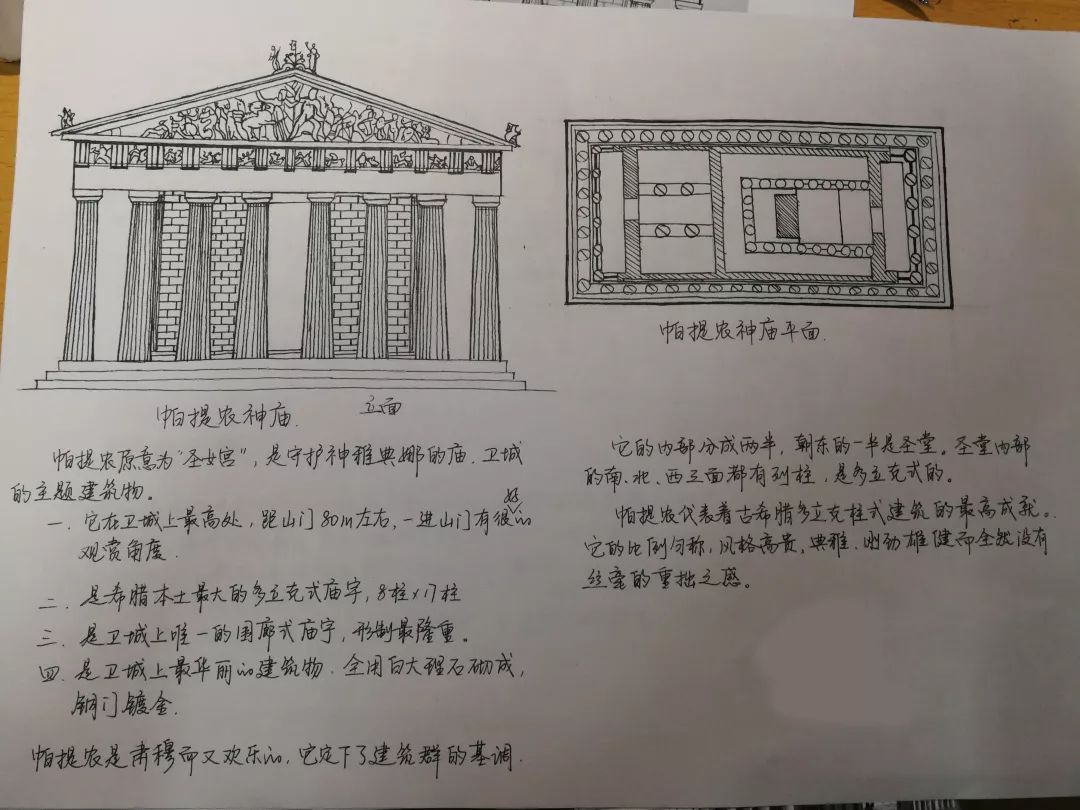 帕提农神庙.
立面
帕提农神庙平面.
帕提农原意为"圣女宫"，是守护神雅典娜的庙．卫城
的主题建筑物。
一．它在卫城上最高处，距山门80m左右，一进山门有很好的
观赏角度．
二．是希腊本土最大的多立克式庙宇，8柱×17柱
三．是卫城上唯一的围廊式庙宇，形制最隆重。
四．是卫城上最华丽的建筑物．全用白大理石砌成，
铜门镀金．
帕提农是肃穆而又欢乐的，它定下了建筑群的基调．
它的内部分成两半，朝东的一半是圣堂。圣堂内部
的南、北、西三面都有列柱，是多立克式的。
帕提农代表着古希腊多立克柱式建筑的最高成就。
它的比例匀称，风格高贵，典雅、刚劲雄健而全然没有
丝毫的重拙之感。